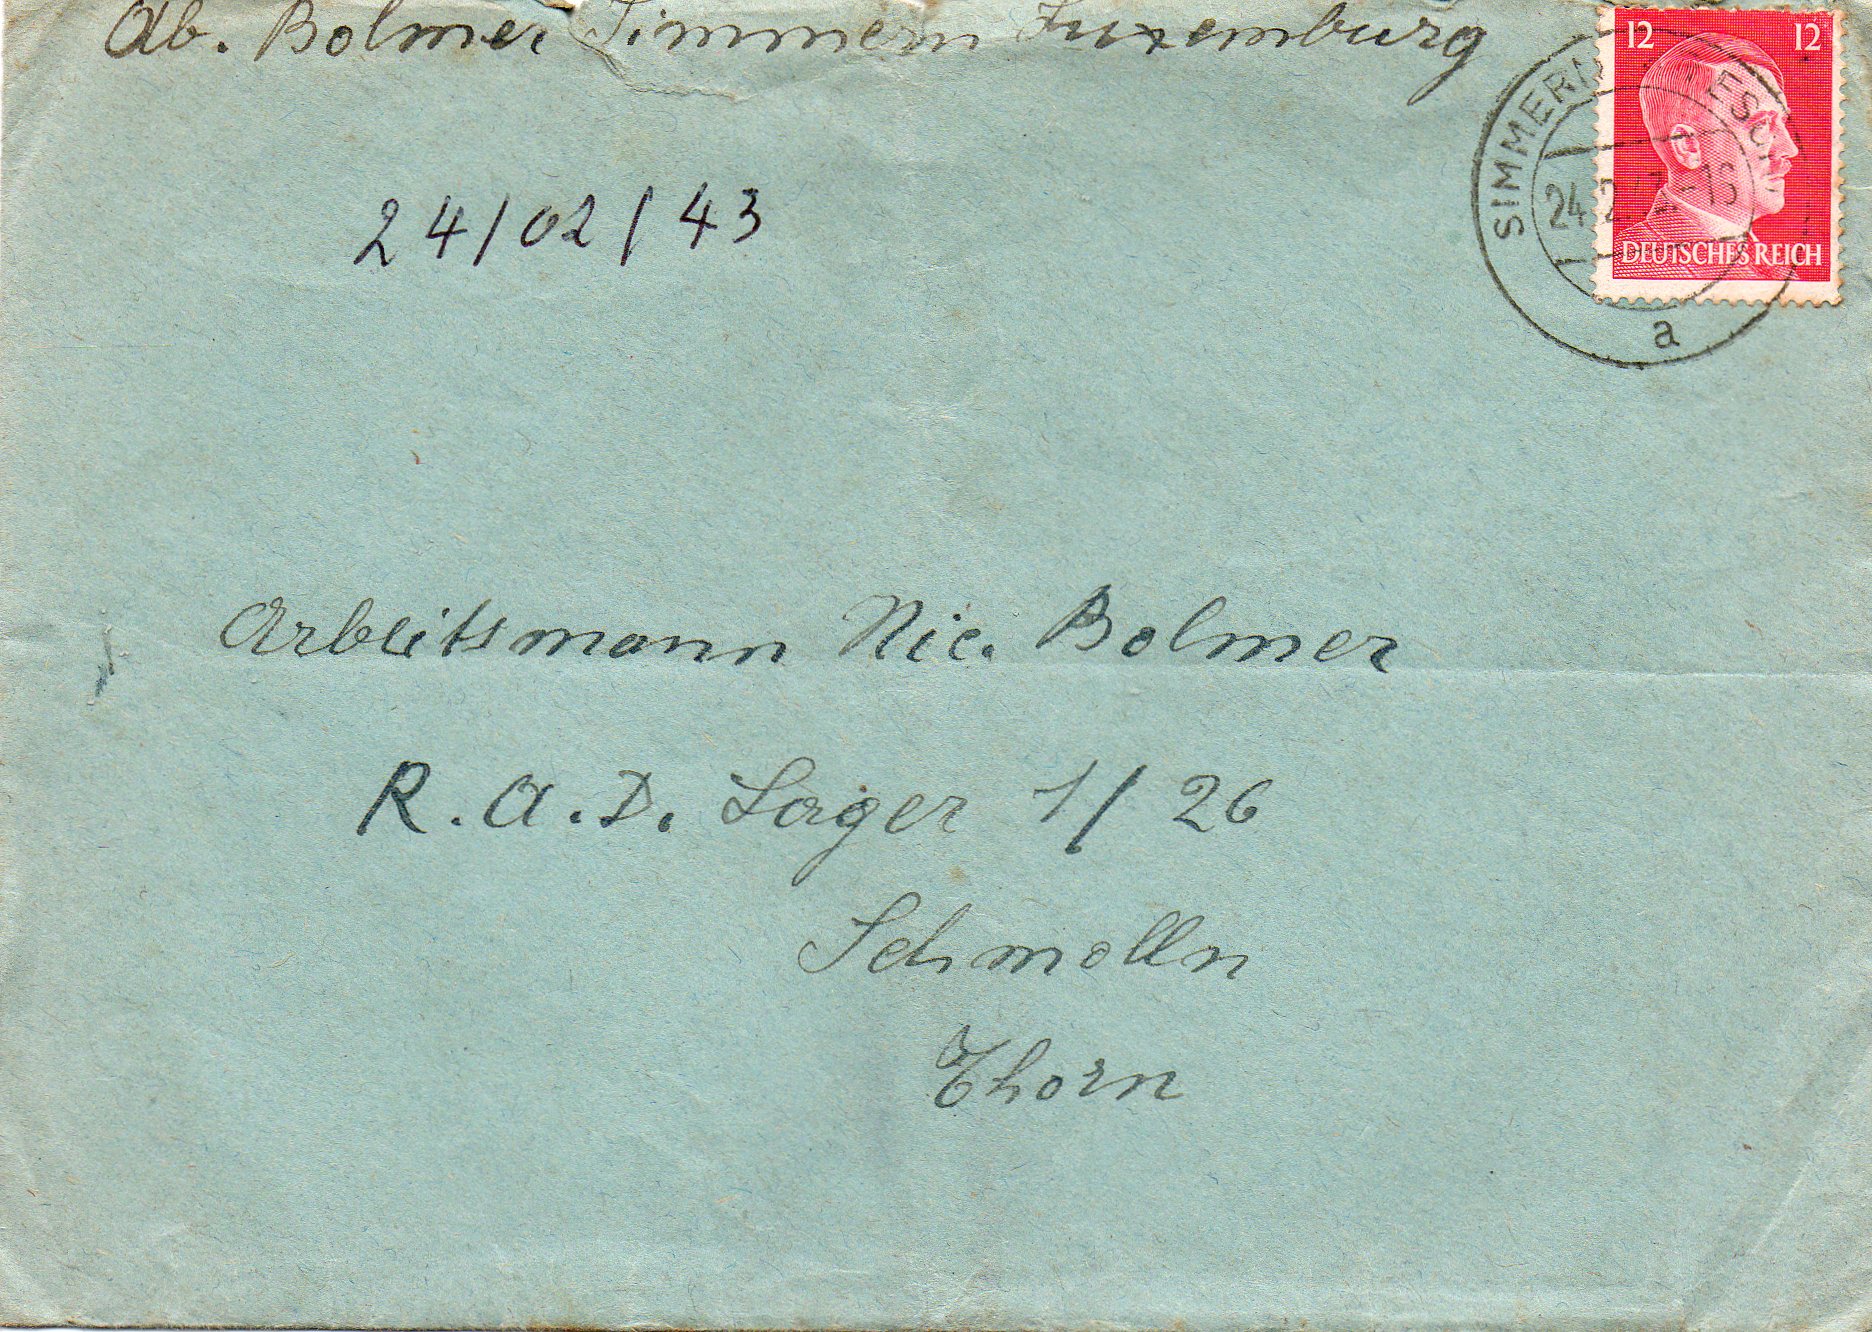 Ab. Bolmer Simmern Luxemburg
12 12
SIMMERN
24.2.43 -16
DEUTSCHES REICH
a
24/02/43
Arbeitsmann Nic. Bolmer
R.A.D. Lager 1/26
Schmolln
Thorn